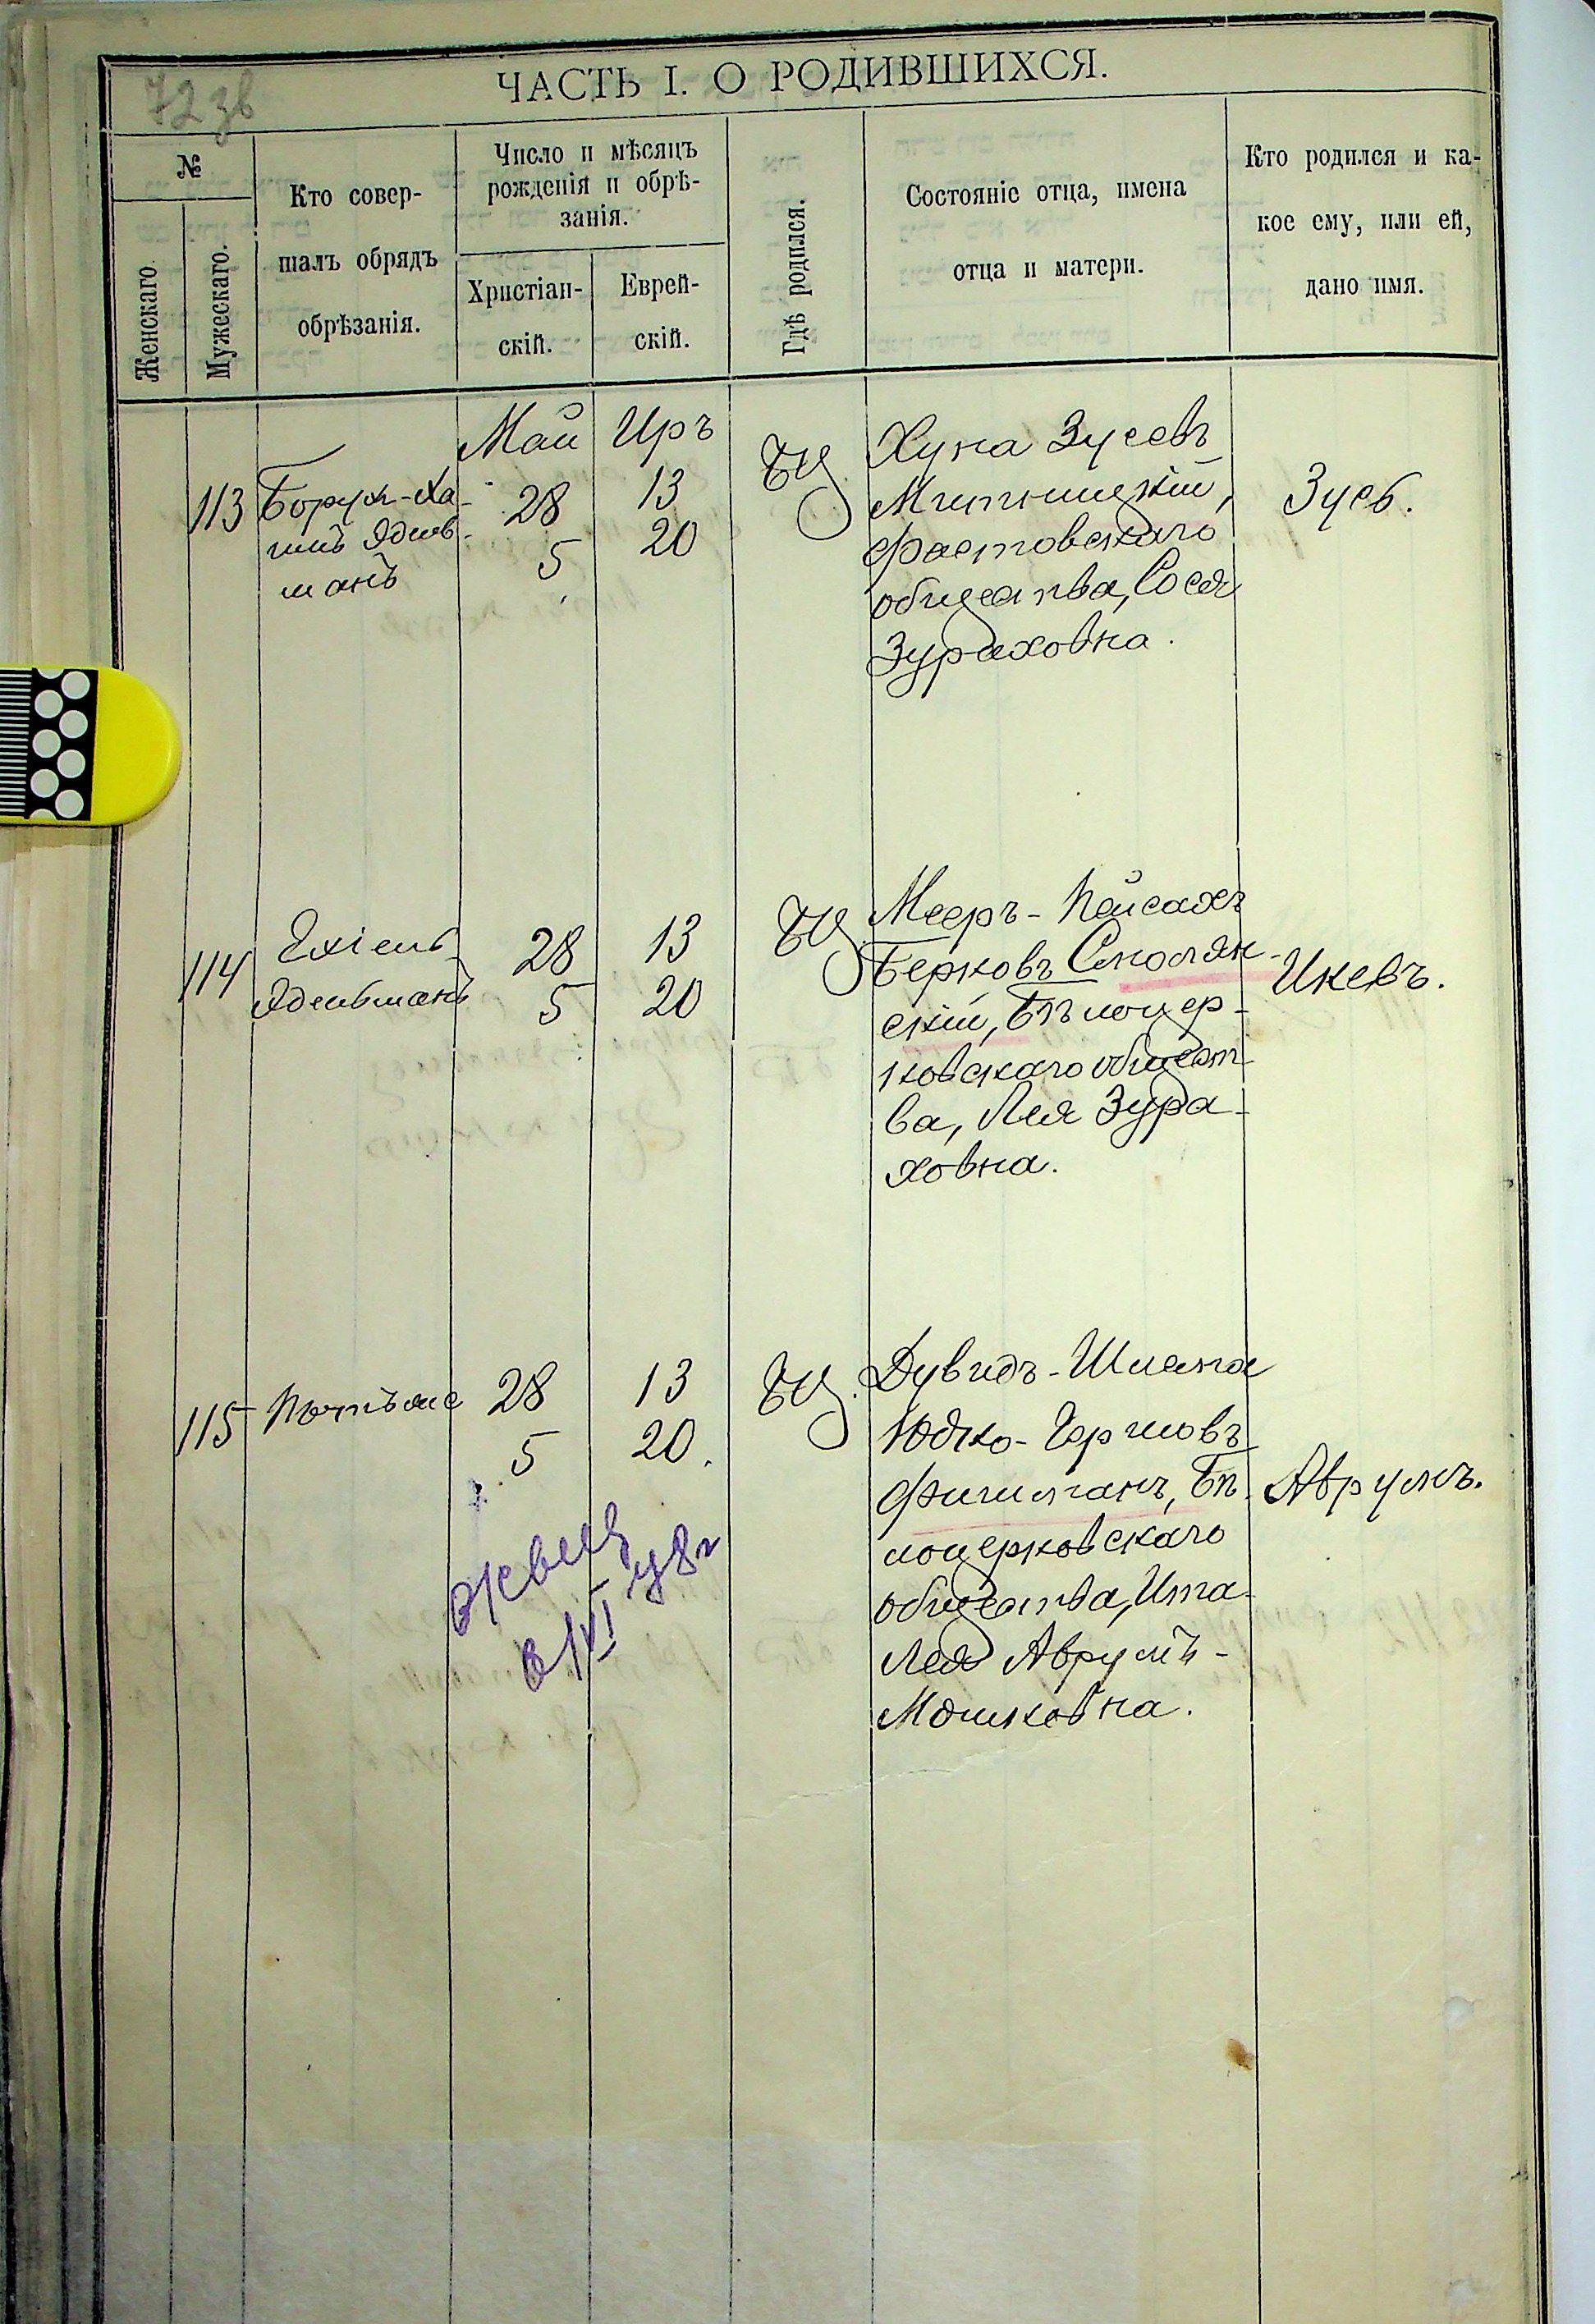 72 зв
ЧАСТЬ I. О РОДИВШИХСЯ.
№
Женскаго.
Мужескаго.
Кто совер-
шалъ обрядъ
обрѣзанія.
Число и мѣсяцъ
рожденія и обрѣ-
занія.
Христіан-
скій.
Еврей-
скій.
Гдѣ родился.
Состояніе отца, имена
отца и матери.
Кто родился и ка-
кое ему, или ей,
дано имя.
Май
Иръ
113
Борух-Ха-
имъ Эдель-
манъ
28
5
13
20
БЦ
Хуна Зусевъ
Митницкій,
Фастовскаго
общества, Сося
Зураховна.
Зусь.
114
Ехіель
Эдельманъ
28
5
13
20
БЦ.
Мееръ-Пейсахъ
Берковъ Смолян-
скій, Бѣлоцер-
ковскаго общест-
ва, Лея Зура-
ховна.
Икевъ.
115
28
5
13
20.
БЦ.
Дувидъ-Шлема
Юдко-Гершовъ
Фишманъ, Бѣ-
лоцерковскаго
общества, Ита-
Лея Аврумъ-
Мошковна.
Аврумъ.